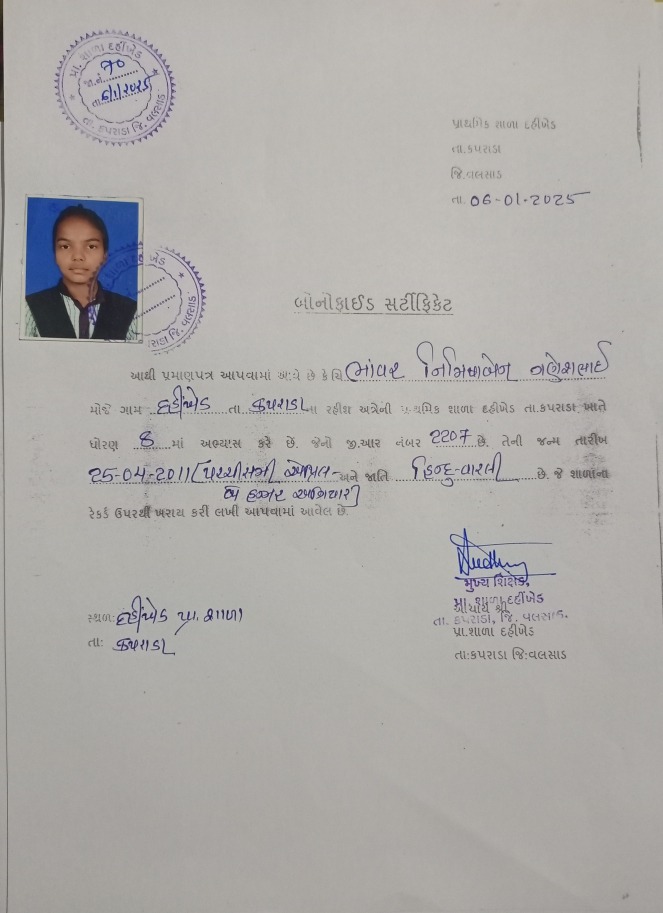 પ્રા. શાળા દહીંખેડ
જા.નં. 70
તા. 6/1/2025
તા. કપરાડા જિ. વલસાડ
પ્રાથમિક શાળા દહીંખેડ
તા.કપરાડા
જી.વલસાડ
તા. 06-01-2025
બોનોફાઈડ સર્ટીફિકેટ
આથી પ્રમાણપત્ર આપવામાં આવે છે કે ચિ. ગણેશભાઈ
મોજે ગામ દહીંખેડ તા. કપરાડા ના રહીશ અત્રેની પ્રાથમિક શાળા દહીખેડ તા.કપરાડા ખાતે
ધોરણ 8 માં અભ્યાસ કરે છે. જેનો જી.આર નંબર 2207 છે. તેની જન્મ તારીખ
25-04-2011 (પચ્ચીસમી એપ્રિલ અને જાતિ હિન્દુ-વારલી છે. જે શાળાના
બે હજાર અગિયાર)
રેકર્ડ ઉપરથી ખરાય કરી લખી આપવામાં આવેલ છે.
મુખ્ય શિક્ષક,
પ્રા. શાળા દહીંખેડ
આચાર્ય શ્રી
તા. કપરાડા, જિ. વલસાડ.
સ્થળ: દહીંખેડ પ્રા. શાળા
પ્રા.શાળા દહીખેડ
તા: કપરાડા
તા:કપરાડા જિ:વલસાડ